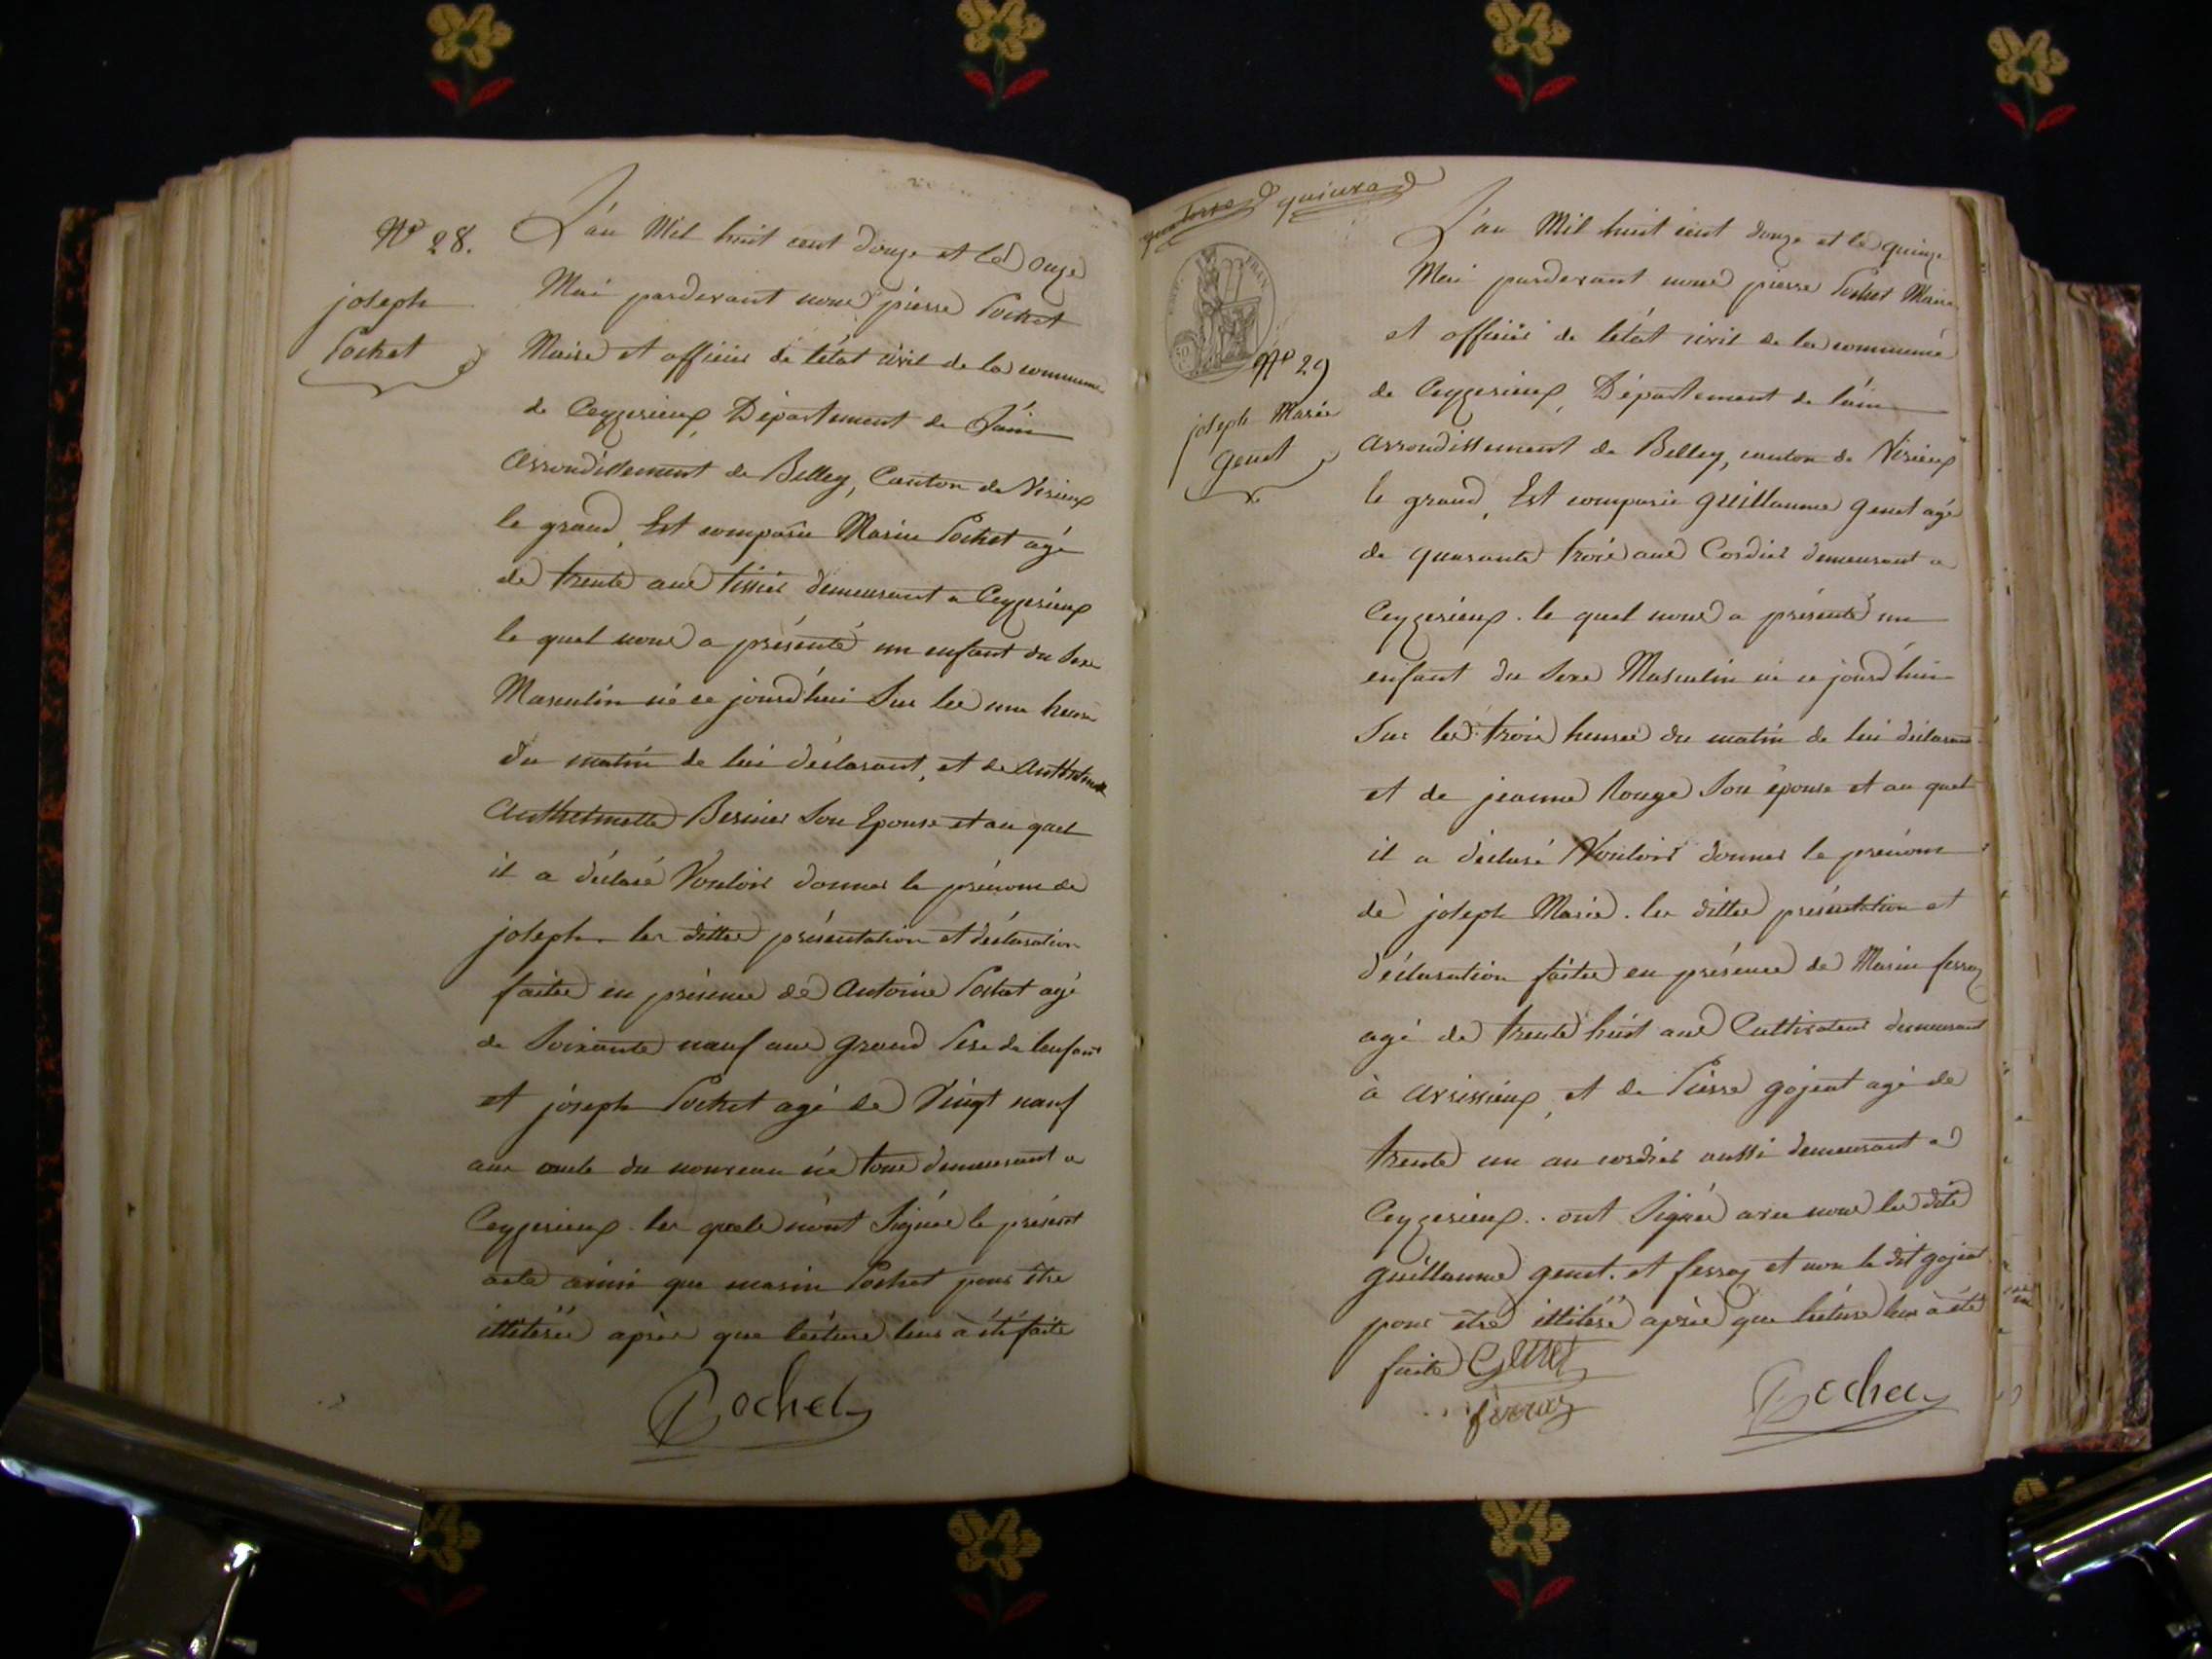 N° 28.
joseph
Pochet
L'an Mil huit cent douze et le onze
Mai pardevant nous pierre Pochet
Maire et officier de létat civil de la commune
de Ceyzerieux, Département de L'ain
arrondissement de Belley, Canton de Virieux
le grand, Est comparu Marin Pochet agé
de trente ans tissier demeurant a Ceyzerieux
le quel nous a présenté un enfant du sexe
Masculin né ce jourd'hui Sur les une heure
du matin de lui déclarant, et de
Anthelmette Bernier Son Epouse et au quel
il a déclaré Vouloir donner le prénom de
joseph. les dittes présentation et déclaration
faites en présence de Antoine Pochet agé
de Soixante neuf ans grand Pere de lenfant
et joseph Pochet agé de Vingt neuf
ans oncle du nouveau né tous demeurant a
Ceyzerieux. les quels n'ont Signés le présent
acte ainsi que marin Pochet pour être
illiterés après que lecture leur à été faite
Pochet
quatorze quinze
FRAN
50
N° 29
joseph Marie
genet
L'an Mil huit cent douze et le quinze
Mai pardevant nous pierre Pochet Maire
et officier de létat civil de la commune
de Ceyzerieux, Département de lain
arrondissement de Belley, canton de Virieux
le grand, Est comparu guillaume genet agé
de quarante trois ans Cordier demeurant a
Ceyzerieux. le quel nous a présenté un
enfant du Sexe Masculin né ce jourd'hui
Sur les trois heures du matin de lui déclarant
et de jeanne Rouge Son épouse et au quel
il a déclaré Vouloir donner le prénom
de joseph Marie. les dittes présentation et
déclaration faites en présence de Marin ferroz
agé de trente huit ans Cultivateur demeurant
à avrissieux, et de Pierre gojeat agé de
trente un an cordier aussi demeurant a
Ceyzerieux.. ont Signés avec nous les dits
guillaume genet. et ferroz et non le dit gojeat
pour être illitéré après que lecture leur à été
faite Genet
ferroz
Pochet